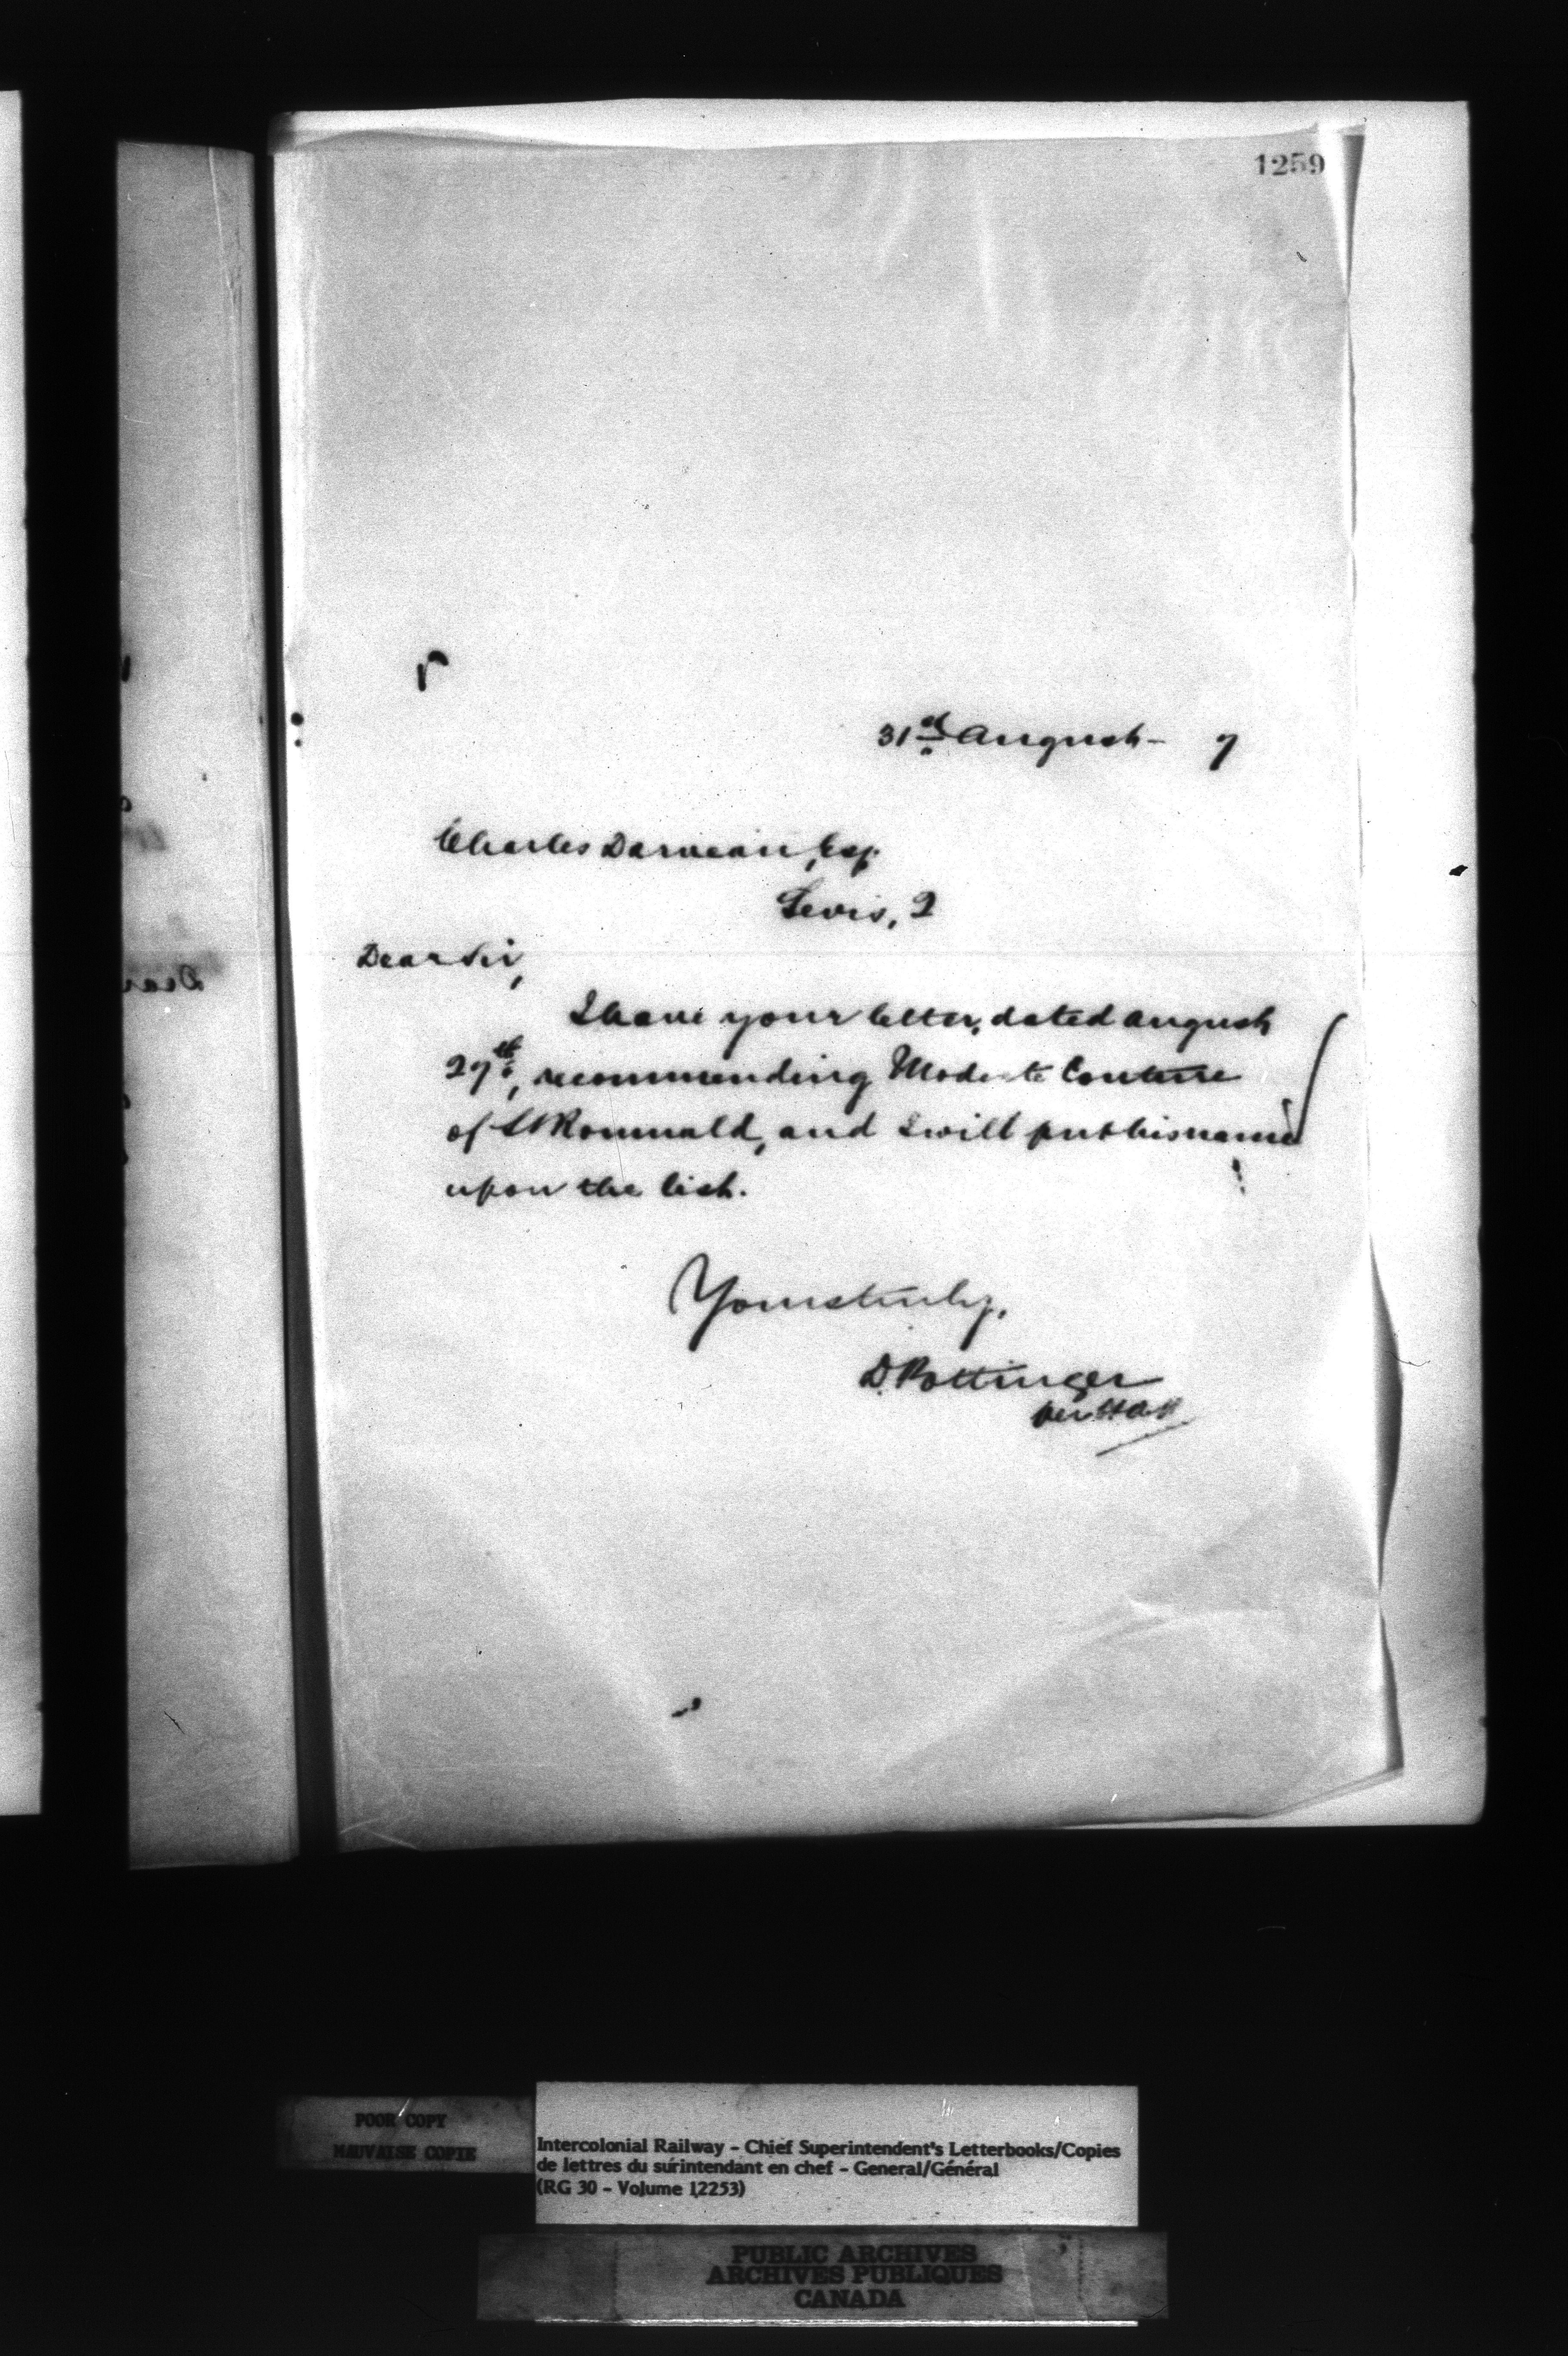 1259
31st August - 7
Charles Darveau, Esq.
Levis, Q
Dear Sir,
I have your letter, dated August
27th, recommending Modeste Couture
of St Romuald, and I will put his name
upon the list.
Yours truly,
D. Pottinger
per
Dear
POOR COPY
MAUVAISE COPIE
Intercolonial Railway - Chief Superintendent's Letterbooks/Copies
de lettres du surintendant en chef - General/Général
(RG 30 - Volume 12253)
PUBLIC ARCHIVES
ARCHIVES PUBLIQUES
CANADA